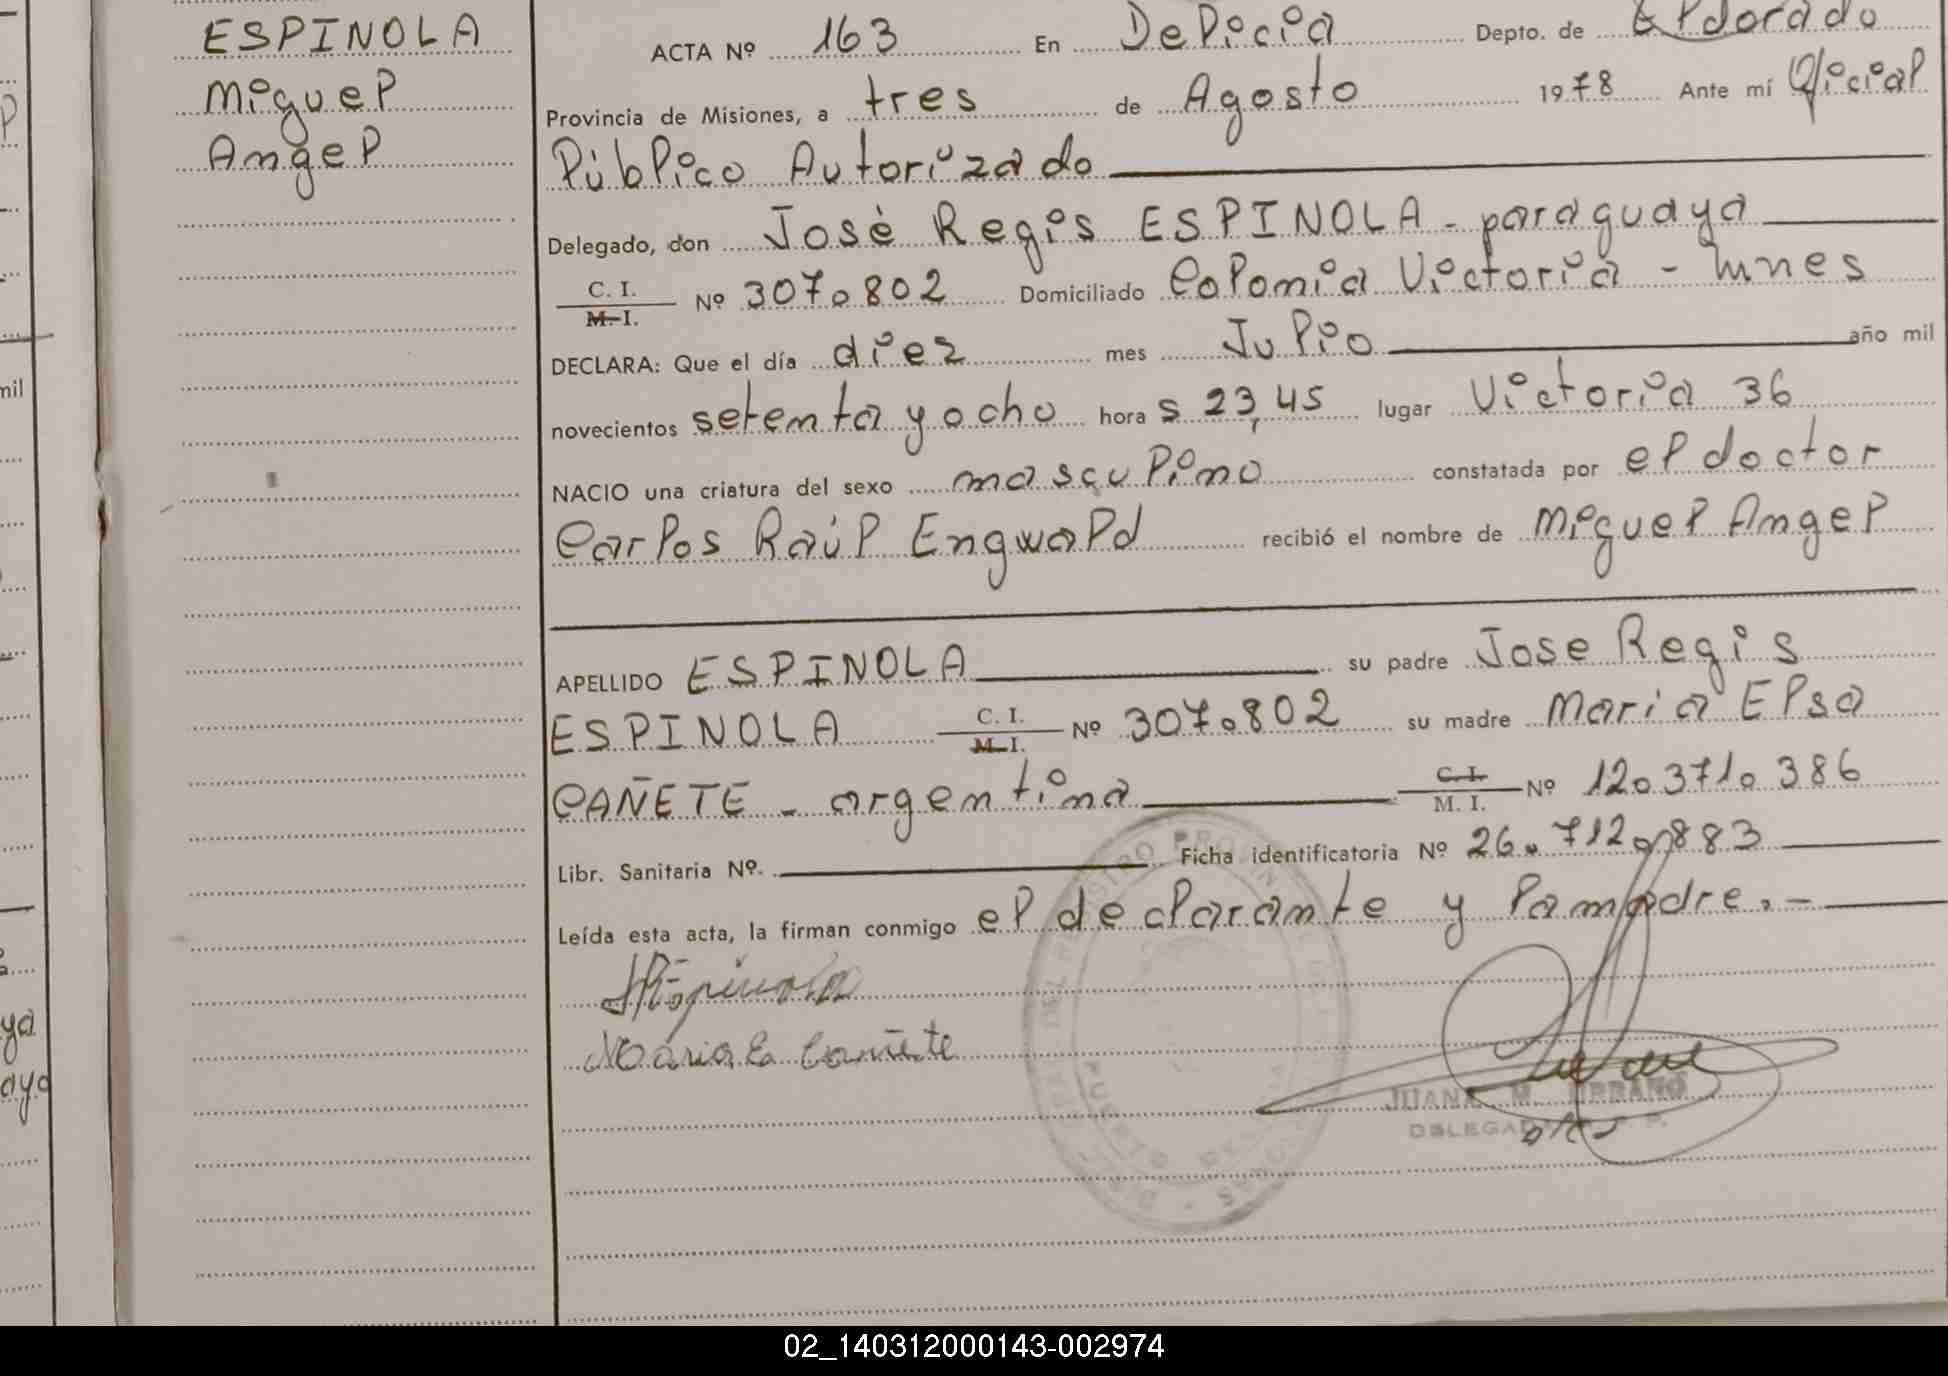 ESPINOLA
Miguel
Angel
ACTA Nº 163 En Delicia Depto. de Eldorado
Provincia de Misiones, a tres de Agosto 1978 Ante mí Oficial
Público Autorizado
Delegado, don José Regis ESPINOLA - paraguaya
C. I. / M. I. Nº 307.802 Domiciliado Colonia Victoria - Mnes
DECLARA: Que el día diez mes Julio año mil
novecientos setenta y ocho hora s 23,45 lugar Victoria 36
NACIO una criatura del sexo masculino constatada por el doctor
Carlos Raúl Engwald recibió el nombre de Miguel Angel
APELLIDO ESPINOLA su padre Jose Regis
ESPINOLA C. I. / M. I. Nº 307.802 su madre Maria Elsa
CAÑETE - argentina C. I. / M. I. Nº 12.371.386
Libr. Sanitaria Nº. Ficha identificatoria Nº 26.712.883
Leída esta acta, la firman conmigo el declarante y la madre. -
Espinola
Maria E Cañete
JUANA M. URBANO
DELEGADA
mil
02_140312000143-002974